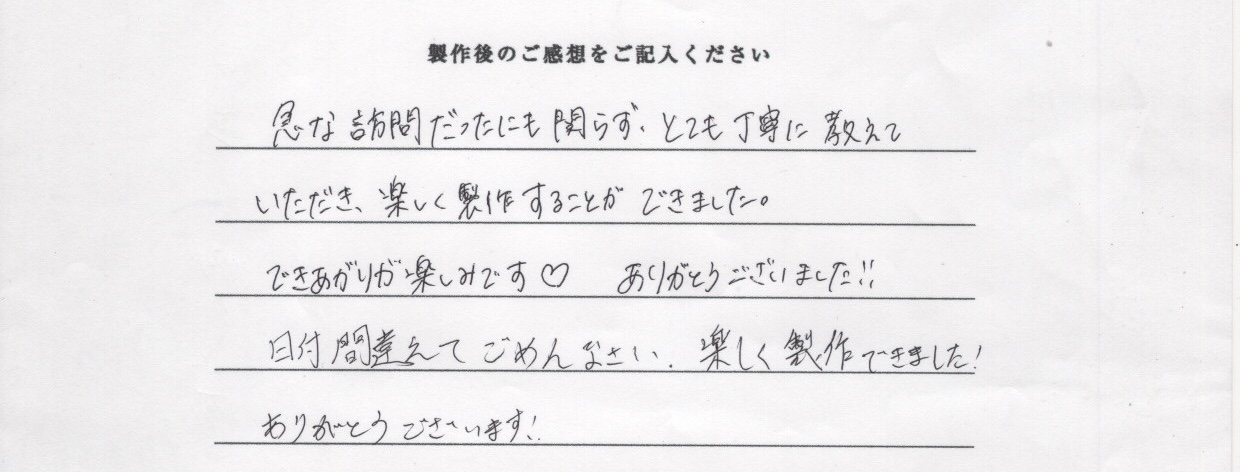 製作後のご感想をご記入ください
急な訪問だったにも関らず、とても丁寧に教えて
いただき、楽しく製作することができました。
できあがりが楽しみです♡ ありがとうございました!!
日付間違えてごめんなさい. 楽しく製作できました!
ありがとうございます!